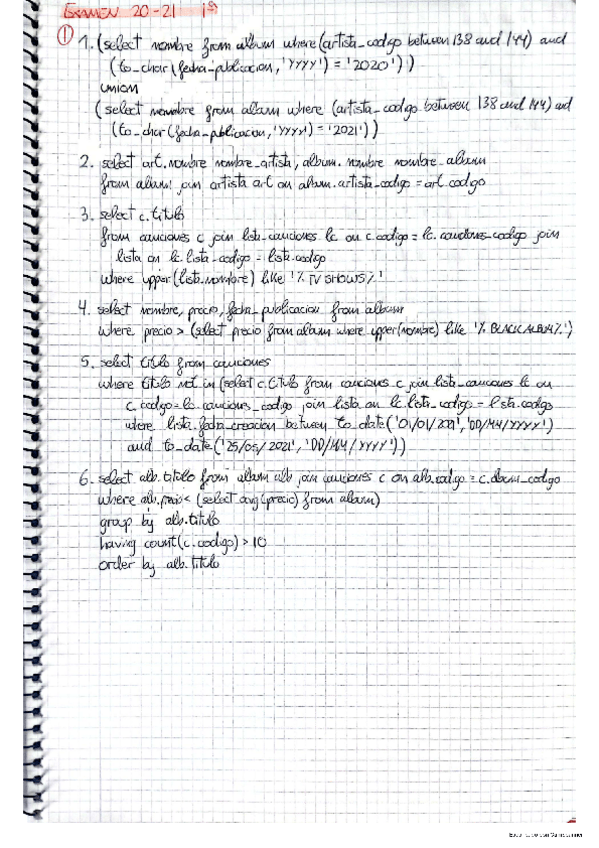 EXAMEN 20-21 1º
① 1. (select nombre from album where (artista_codigo between 138 and 144) and
(to_char(fecha_publicacion, 'YYYY') = '2020'))
union
(select nombre from album where (artista_codigo between 138 and 144) and
(to_char(fecha_publicacion, 'YYYY') = '2021'))
2. select art.nombre nombre_artista, album.nombre nombre_album
from album join artista art on album.artista_codigo = art.codigo
3. select c.titulo
from canciones c join lista_canciones lc on c.codigo = lc.canciones_codigo join
lista on lc.lista_codigo = lista.codigo
where upper(lista.nombre) like '%TV SHOWS%'
4. select nombre, precio, fecha_publicacion from album
where precio > (select precio from album where upper(nombre) like '%BLACK ALBUM%')
5. select titulo from canciones
where titulo not in (select c.titulo from canciones c join lista_canciones lc on
c.codigo = lc.canciones_codigo join lista on lc.lista_codigo = lista.codigo
where lista.fecha_creacion between to_date('01/01/2021', 'DD/MM/YYYY')
and to_date('25/05/2021', 'DD/MM/YYYY'))
6. select alb.titulo from album alb join canciones c on alb.codigo = c.album_codigo
where alb.precio < (select avg(precio) from album)
group by alb.titulo
having count(c.codigo) > 10
order by alb.titulo